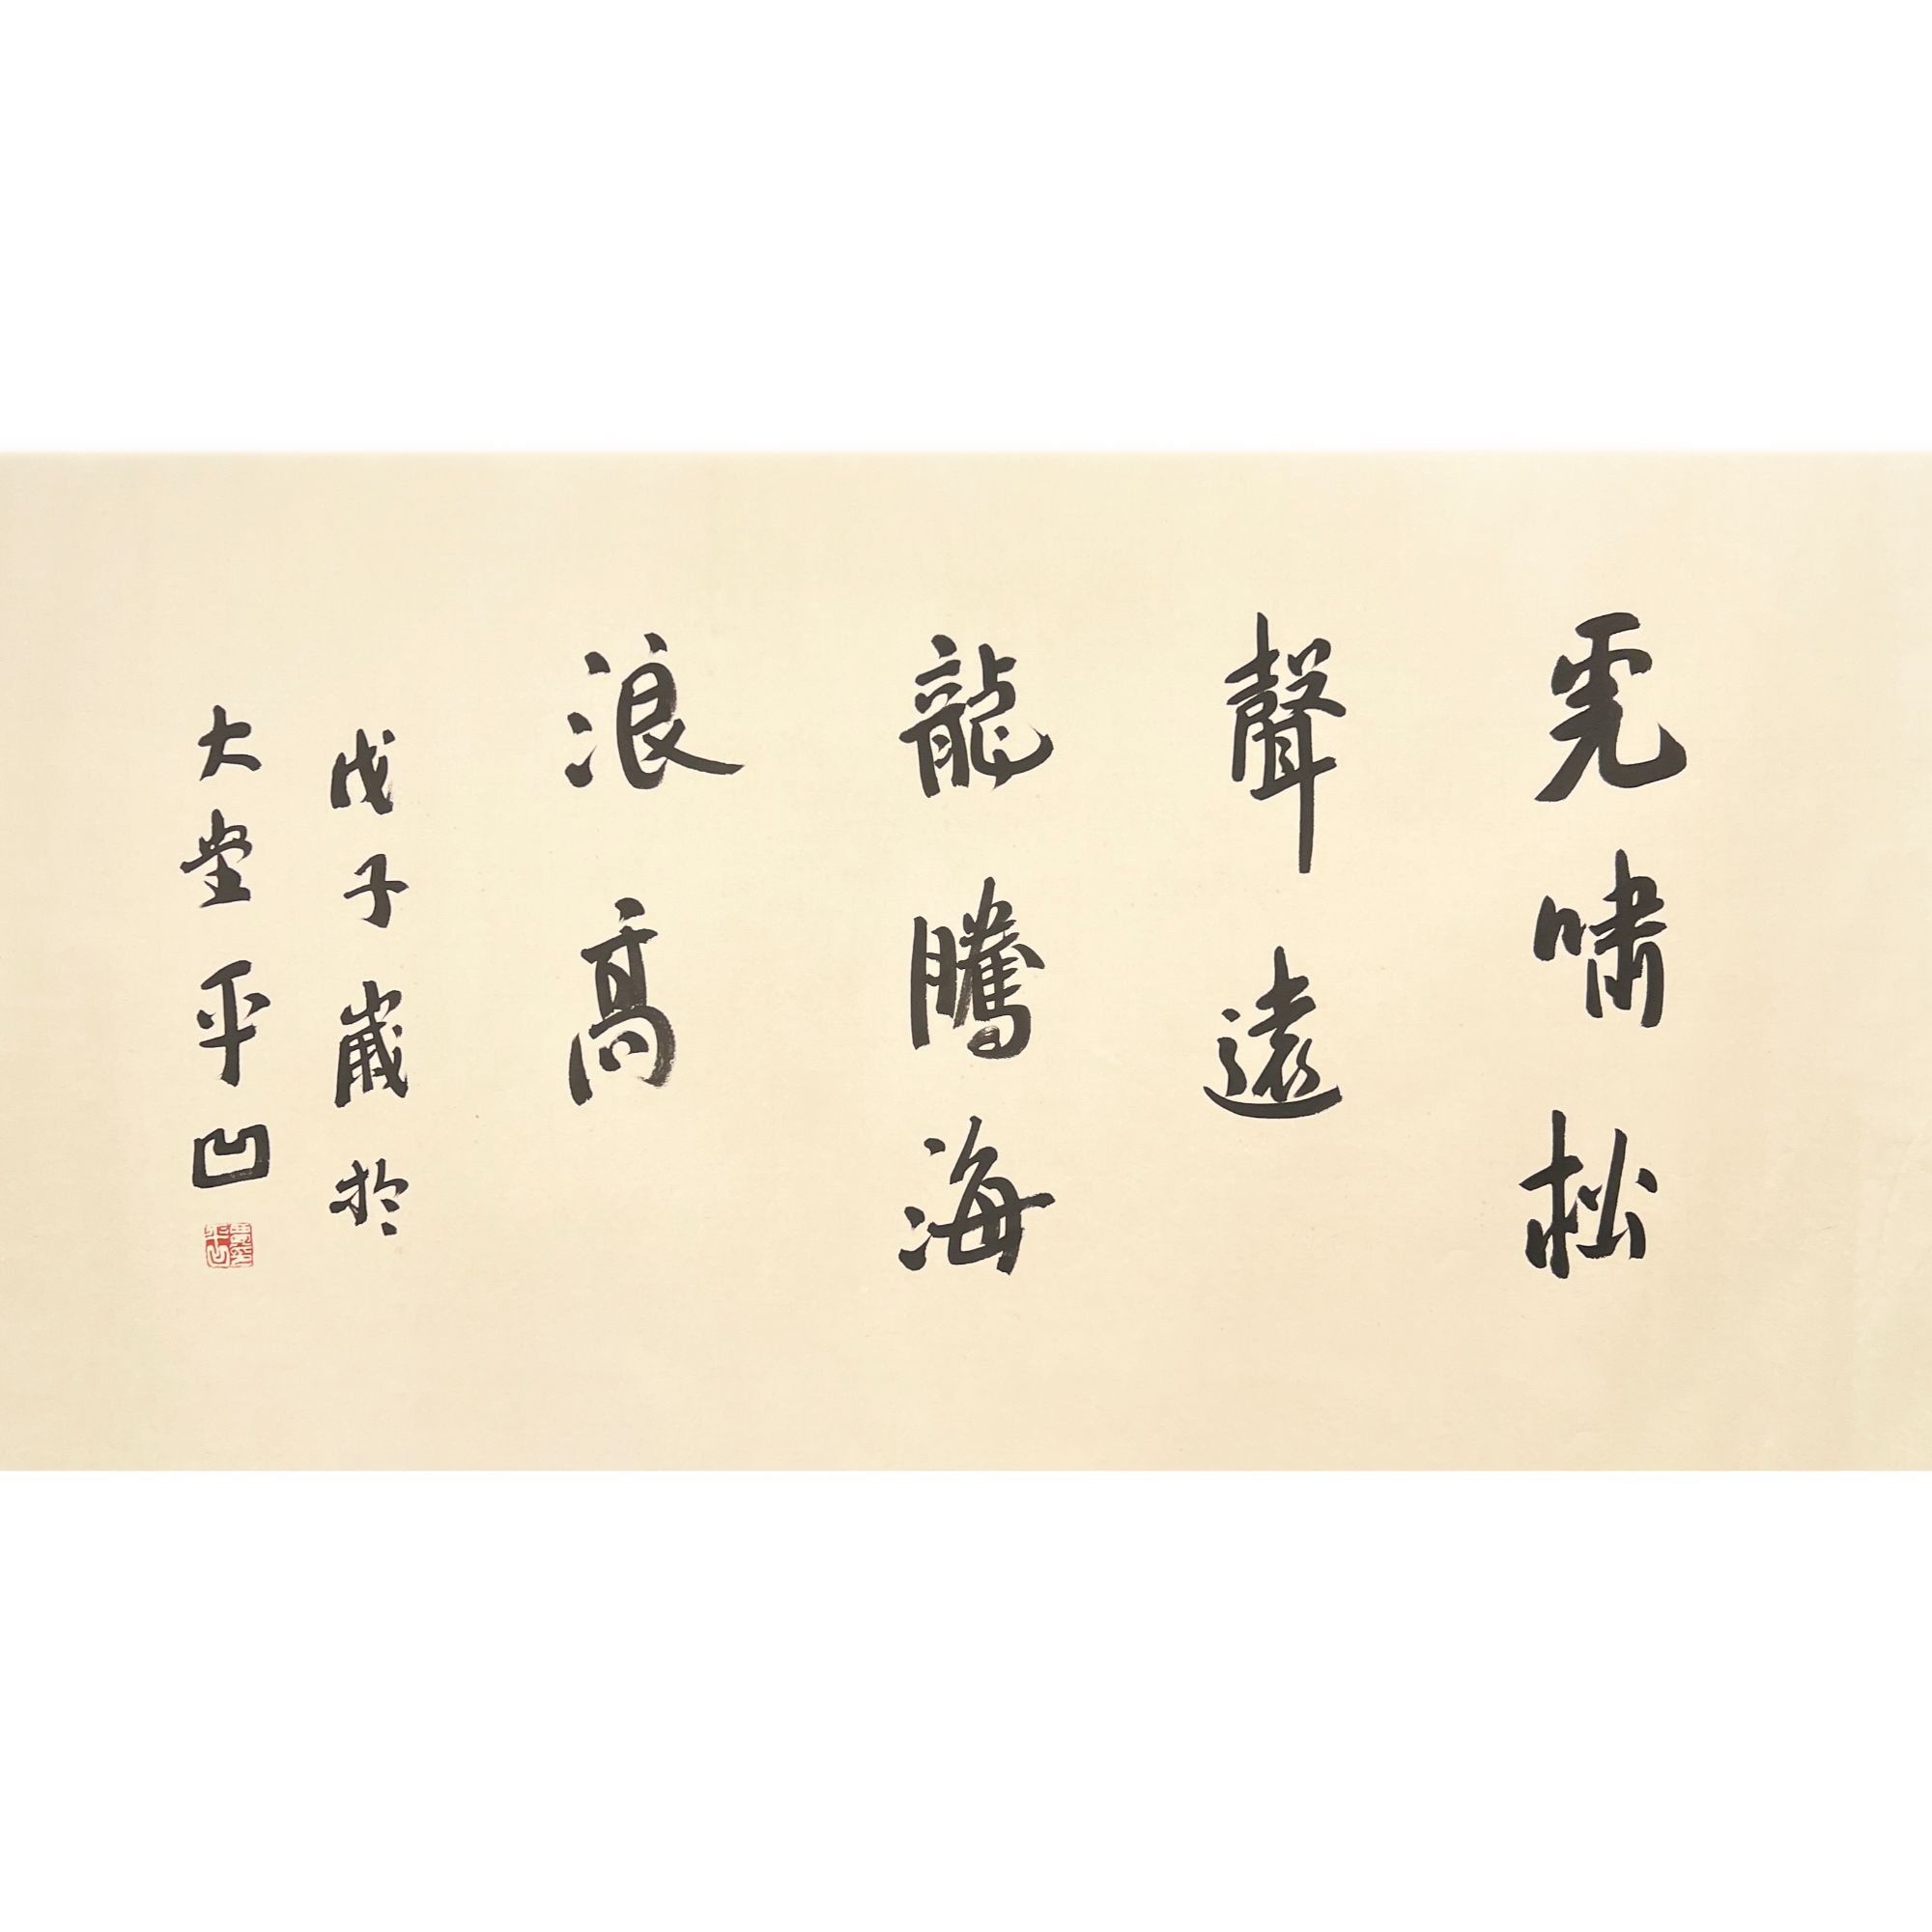 虎啸松
聲遠
龍騰海
浪高
戊子歲於
大堂平凹